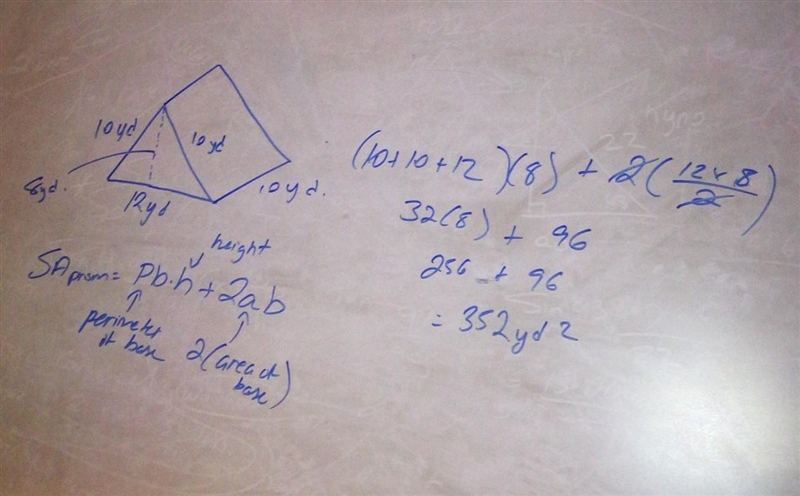 10yd
10yd
8yd.
12yd
10yd.
SA prism = Pb·h + 2ab
height
perimeter
of base
2(area of
base)
(10+10+12)(8) + 2(12×8/2)
32(8) + 96
256 + 96
= 352yd2
22
hypo